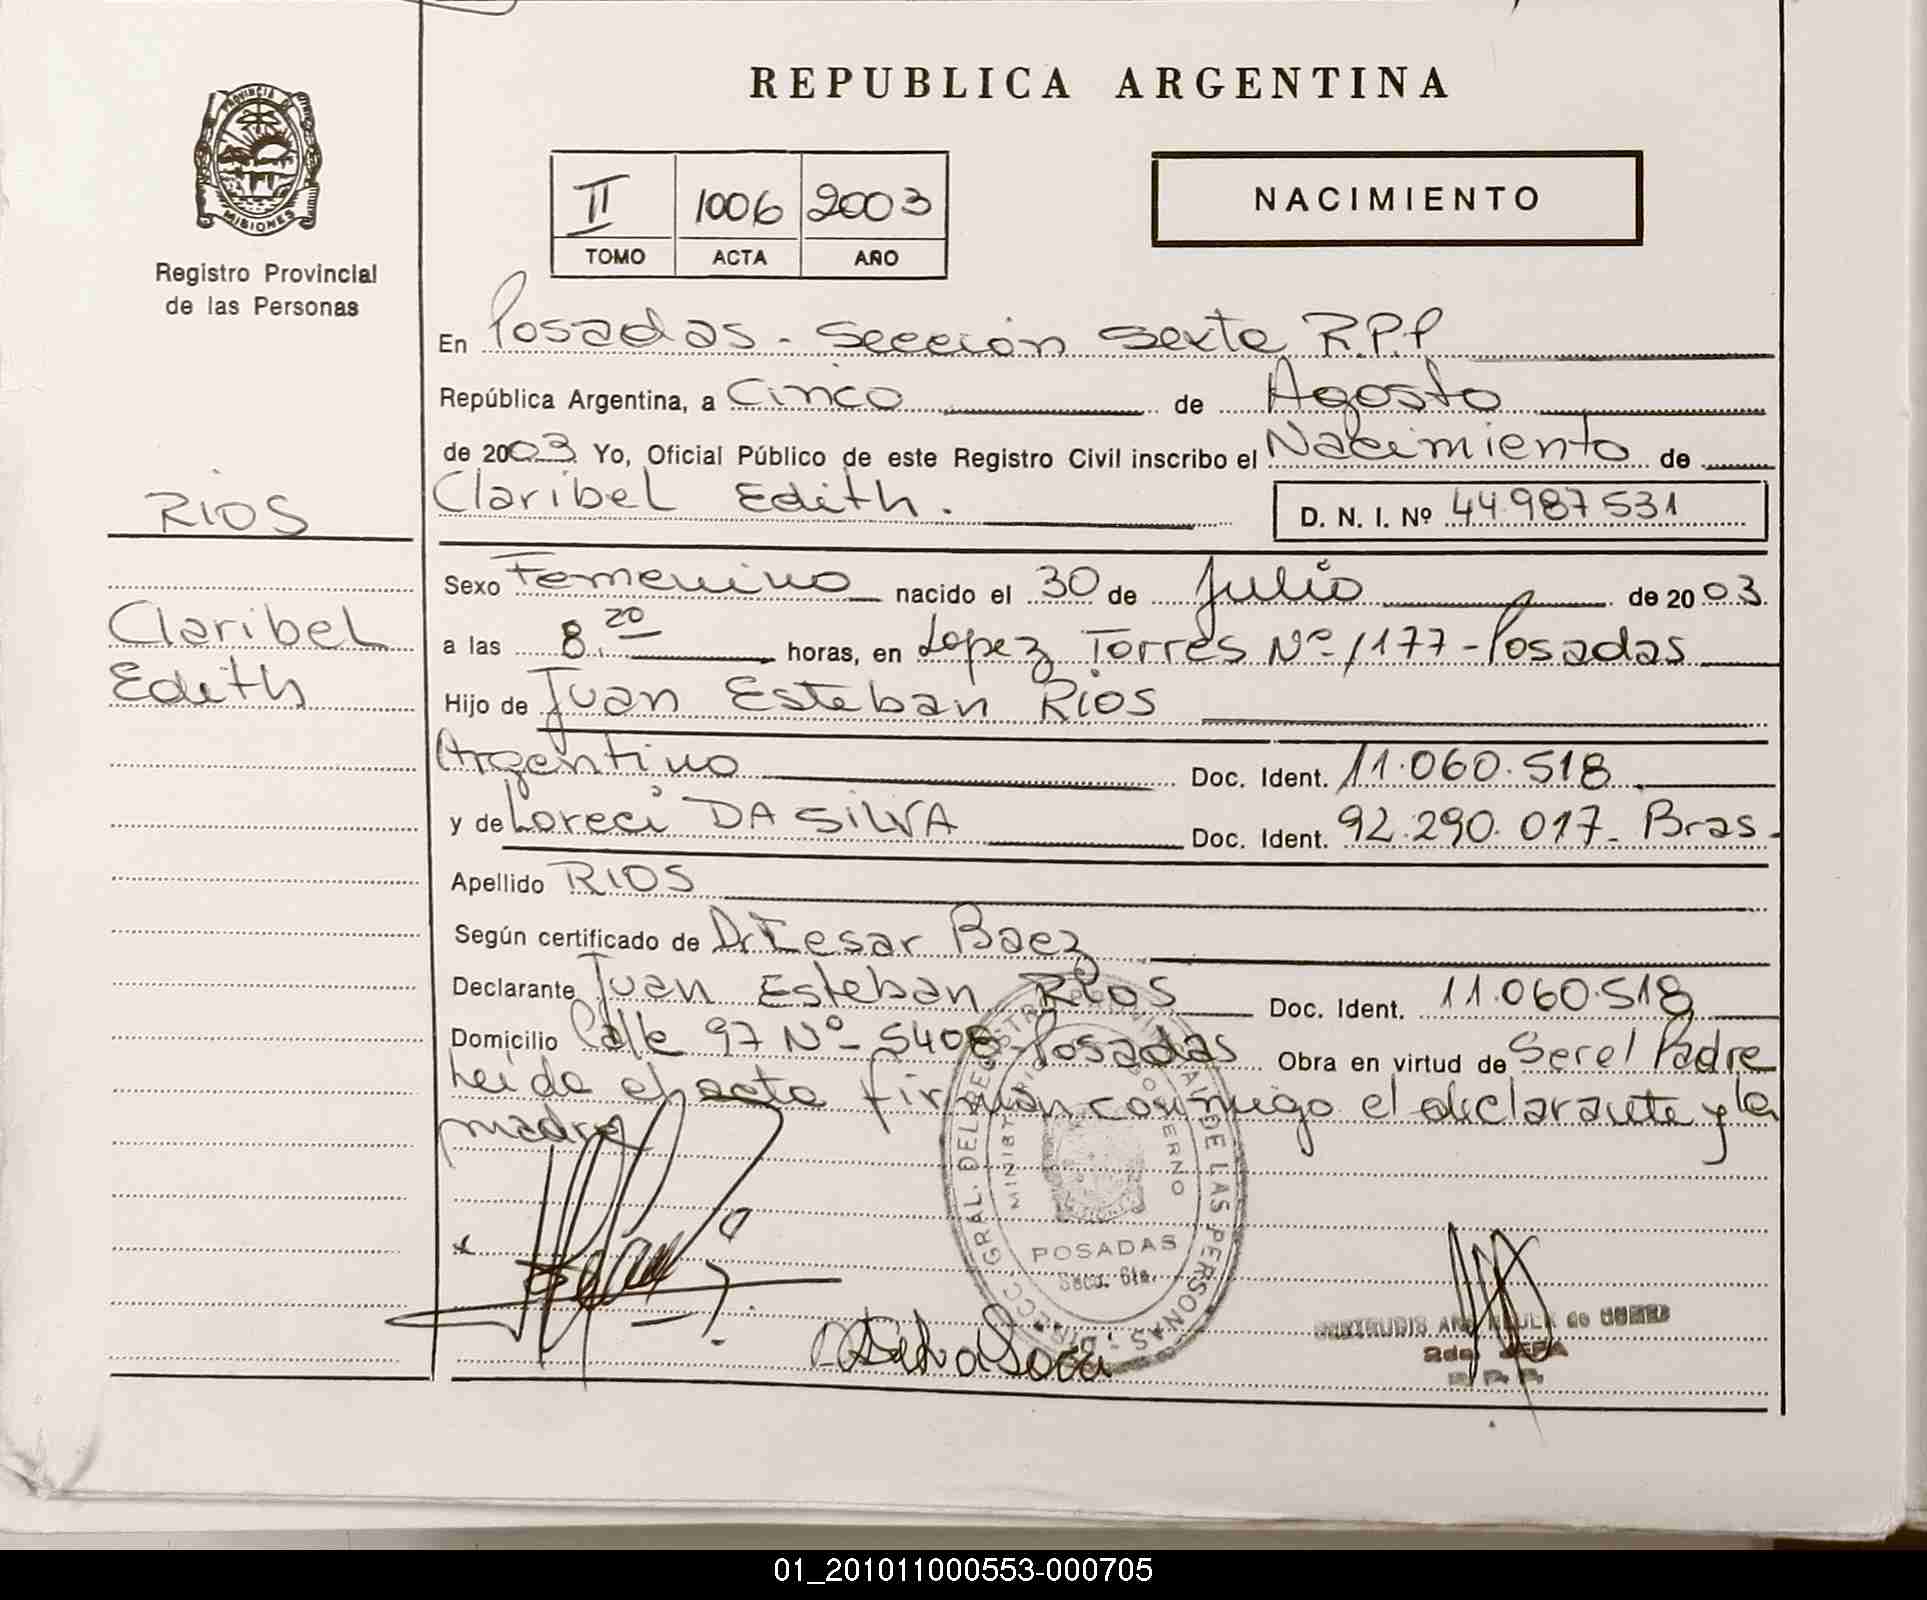 REPUBLICA ARGENTINA
PROVINCIA DE
MISIONES
Registro Provincial
de las Personas
II 1006 2003
TOMO ACTA AÑO
NACIMIENTO
En Posadas - Sección Sexta R.P.P
República Argentina, a Cinco de Agosto
de 2003 Yo, Oficial Público de este Registro Civil inscribo el Nacimiento de
Claribel Edith.
D. N. I. Nº 44.987531
RIOS
Claribel
Edith
Sexo Femenino nacido el 30 de Julio de 2003.
a las 8.20 horas, en Lopez Torres Nº 1177 - Posadas
Hijo de Juan Esteban Rios
Argentino Doc. Ident. 11.060.518
y de Loreci DA SILVA Doc. Ident. 92.290.017- Bras.
Apellido RIOS
Según certificado de Dr Cesar Baez
Declarante Juan Esteban RIOS Doc. Ident. 11.060.518
Domicilio Calle 97 Nº 5408 - Posadas Obra en virtud de Ser el Padre
Leida el acta firman conmigo el declarante y la
madre
DIRECC GRAL. DEL REGISTRO PROVINCIAL DE LAS PERSONAS
MINISTERIO GOBIERNO
POSADAS
Secc. 6ta.
2da. JEFA
R. P. P.
01_201011000553-000705